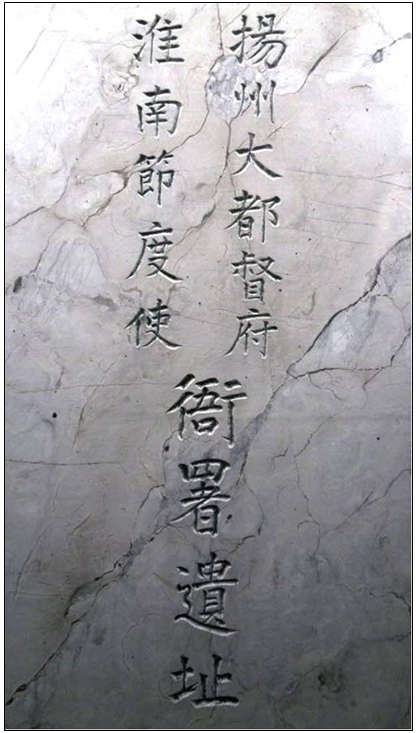 揚州大都督府
淮南節度使
衙署遺址